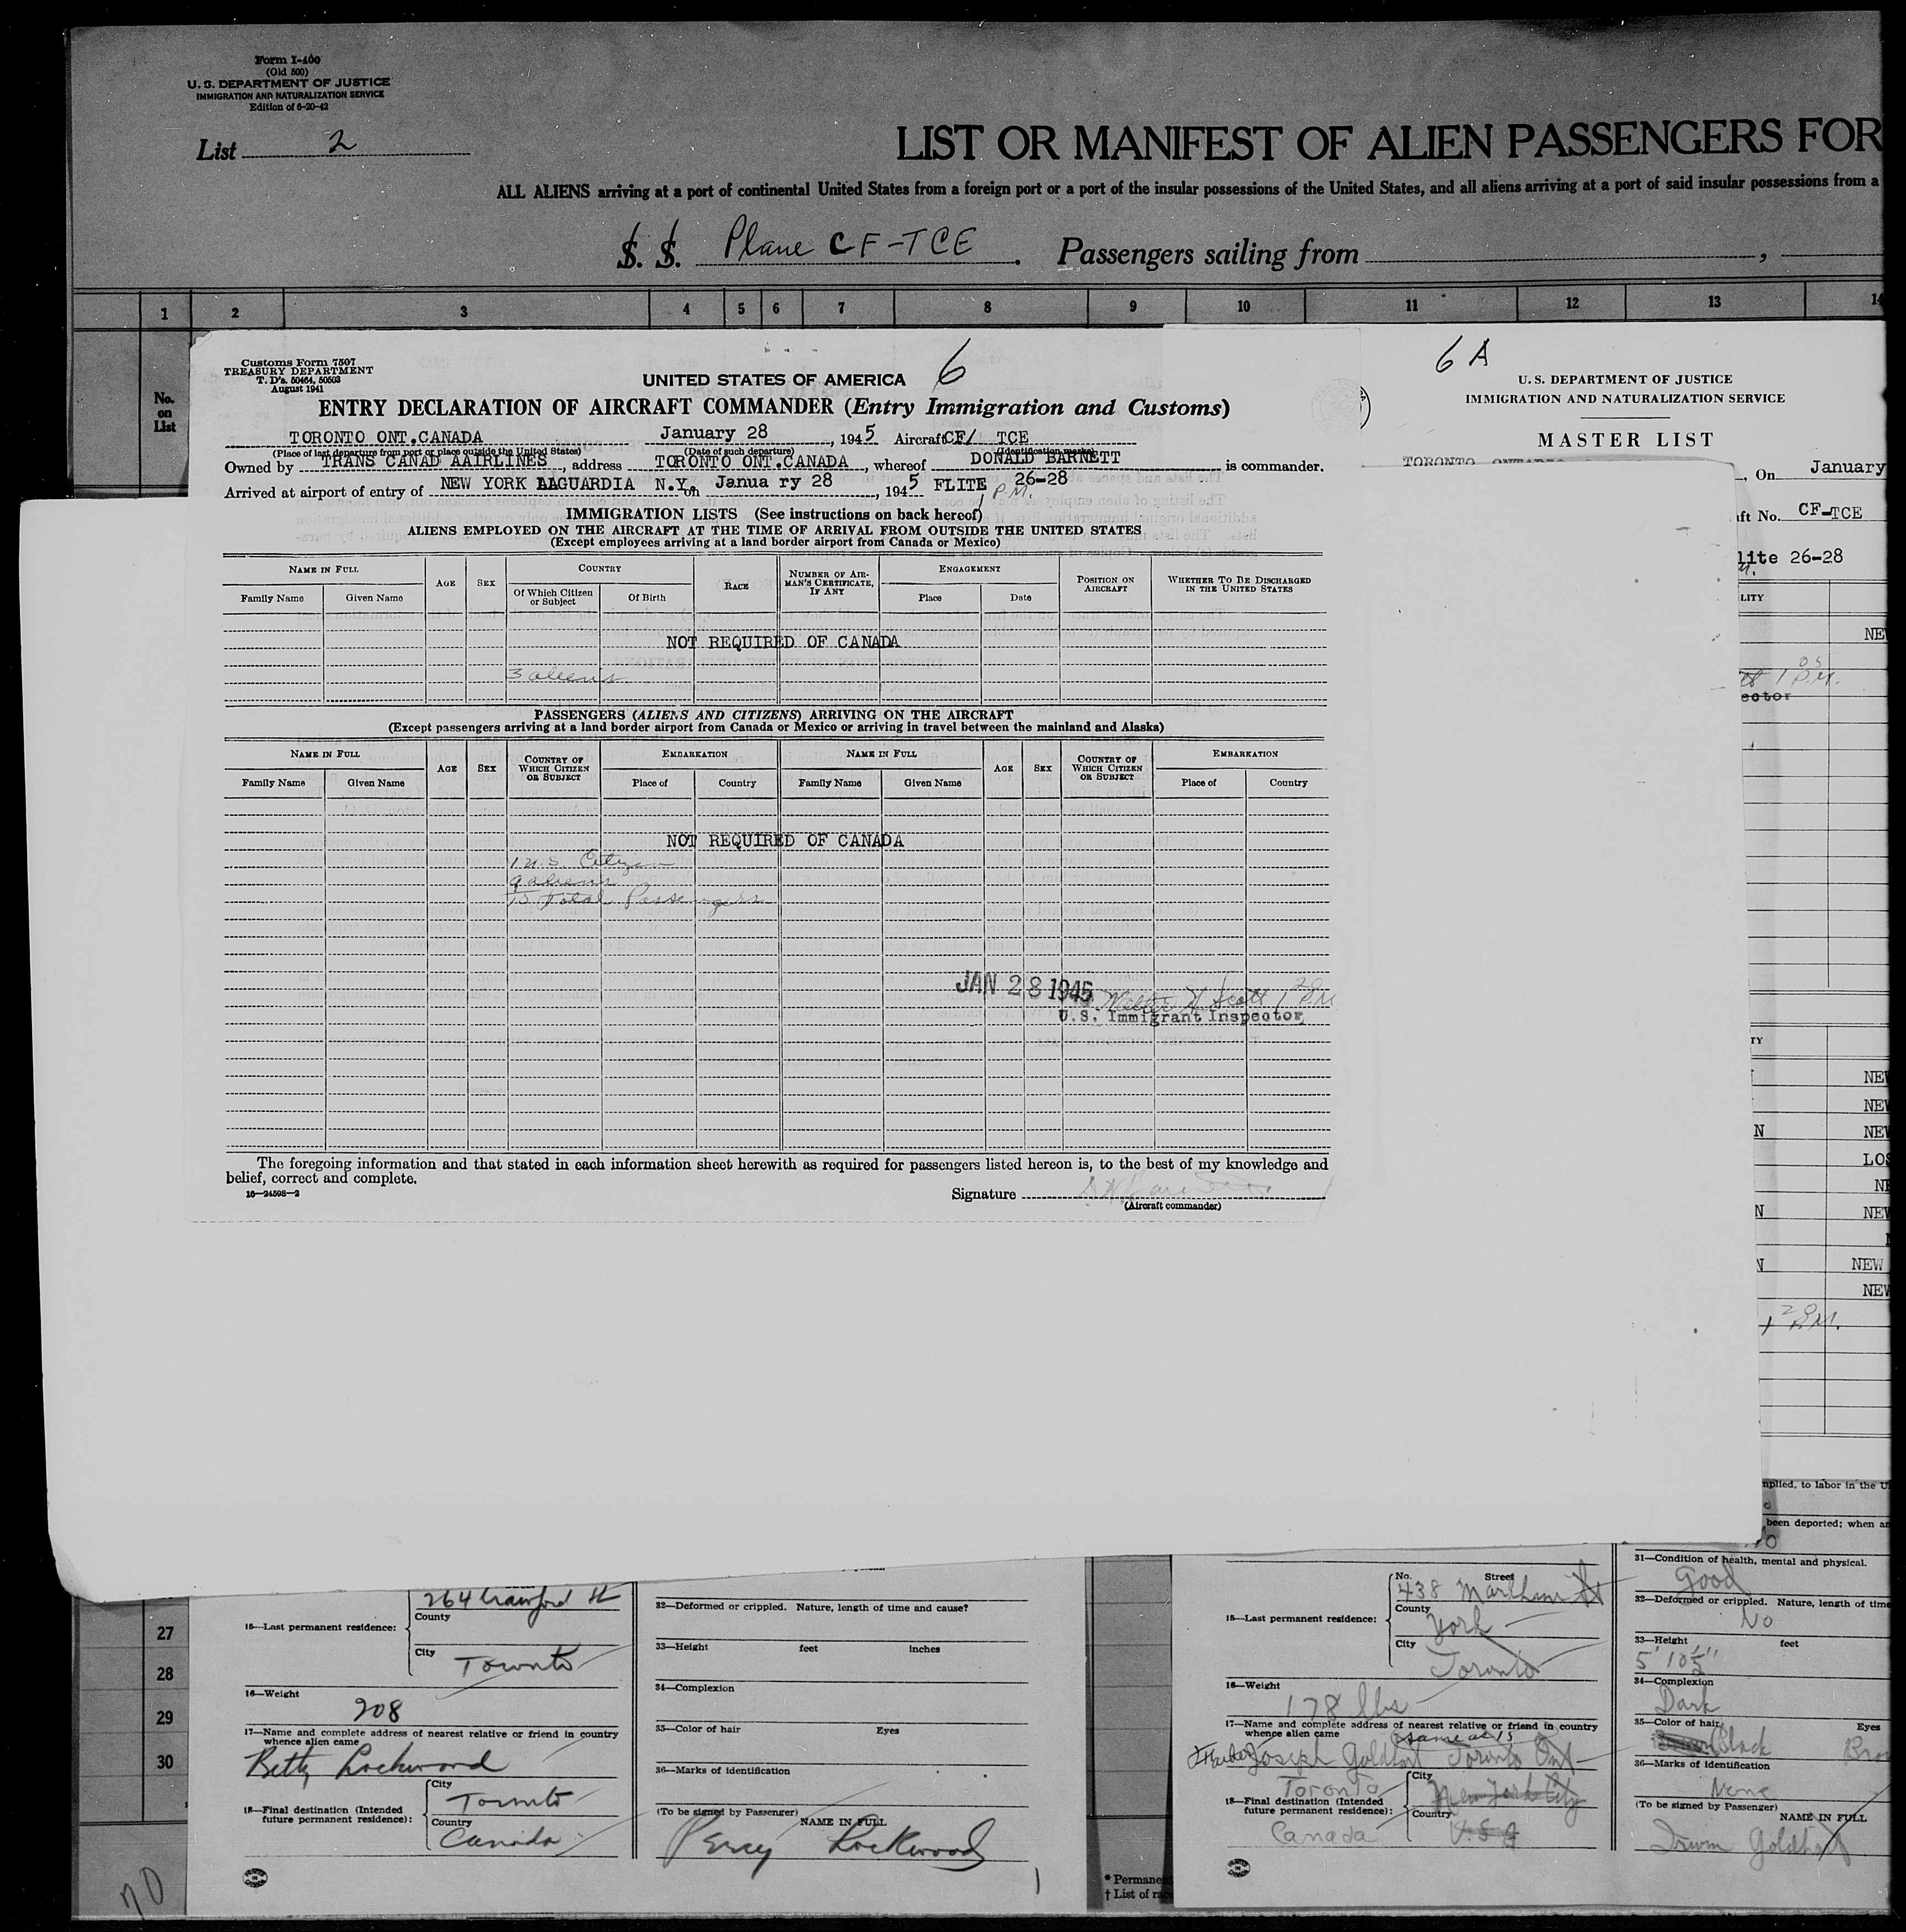 Form I-400
(Old 500)
U. S. DEPARTMENT OF JUSTICE
IMMIGRATION AND NATURALIZATION SERVICE
Edition of 6-20-42
List 2
LIST OR MANIFEST OF ALIEN PASSENGERS FOR
ALL ALIENS arriving at a port of continental United States from a foreign port or a port of the insular possessions of the United States, and all aliens arriving at a port of said insular possessions from a
S. S. Plane CF-TCE. Passengers sailing from ,
1 2 3 4 5 6 7 8 9 10 11 12 13 14
No. on List
Customs Form 7507
TREASURY DEPARTMENT
T. D's. 50464, 50503
August 1941
UNITED STATES OF AMERICA 6
ENTRY DECLARATION OF AIRCRAFT COMMANDER (Entry Immigration and Customs)
TORONTO ONT.CANADA January 28, 1945 Aircraft CF/ TCE
(Place of last departure from port or place outside the United States) (Date of such departure) (Identification marks)
Owned by TRANS CANAD AAIRLINES, address TORONTO ONT.CANADA, whereof DONALD BARNETT is commander.
Arrived at airport of entry of NEW YORK LAGUARDIA N.Y. on Janua ry 28, 1945 FLITE 26-28
P.M.
IMMIGRATION LISTS (See instructions on back hereof)
ALIENS EMPLOYED ON THE AIRCRAFT AT THE TIME OF ARRIVAL FROM OUTSIDE THE UNITED STATES
(Except employees arriving at a land border airport from Canada or Mexico)
NAME IN FULL AGE SEX COUNTRY RACE NUMBER OF AIRMAN'S CERTIFICATE, IF ANY ENGAGEMENT POSITION ON AIRCRAFT WHETHER TO BE DISCHARGED IN THE UNITED STATES
Family Name Given Name Of Which Citizen or Subject Of Birth Place Date
NOT REQUIRED OF CANADA
3 aliens
PASSENGERS (ALIENS AND CITIZENS) ARRIVING ON THE AIRCRAFT
(Except passengers arriving at a land border airport from Canada or Mexico or arriving in travel between the mainland and Alaska)
NAME IN FULL AGE SEX COUNTRY OF WHICH CITIZEN OR SUBJECT EMBARKATION NAME IN FULL AGE SEX COUNTRY OF WHICH CITIZEN OR SUBJECT EMBARKATION
Family Name Given Name Place of Country Family Name Given Name Place of Country
NOT REQUIRED OF CANADA
1 U.S. Citizen
9 aliens
10 Total Passengers
JAN 28 1945 Walter H Scott 1 20 P.M
U.S. Immigrant Inspector
The foregoing information and that stated in each information sheet herewith as required for passengers listed hereon is, to the best of my knowledge and
belief, correct and complete.
16—24598-2
Signature
(Aircraft commander)
6 A
U. S. DEPARTMENT OF JUSTICE
IMMIGRATION AND NATURALIZATION SERVICE
MASTER LIST
TORONTO ONTARIO
On January
ft No. CF-TCE
lite 26-28
LITY
NE
1 05 P.M.
ector
TY
NEW
NEW
N NEW
LOS
NE
N NEW
N NEW
NEW
1 20 P.M.
mplied, to labor in the U
been deported; when an
27
28
29
30
264 Crawford St
County
15—Last permanent residence:
City Toronto
16—Weight
208
17—Name and complete address of nearest relative or friend in country
whence alien came
Betty Lockwood
City
Toronto
18—Final destination (Intended
future permanent residence):
Country
Canada
32—Deformed or crippled. Nature, length of time and cause?
33—Height feet inches
34—Complexion
35—Color of hair Eyes
36—Marks of identification
(To be signed by Passenger)
NAME IN FULL
Percy Lockwood
70
* Permane
† List of rac
No. Street
438 Markham St
15—Last permanent residence:
County
York
City
Toronto
16—Weight
178 lbs
17—Name and complete address of nearest relative or friend in country
whence alien came same as 15
Father Joseph Goldhart Toronto Ont
Toronto
City
New York City
18—Final destination (Intended
future permanent residence):
Country
Canada U.S A
31—Condition of health, mental and physical.
Good
32—Deformed or crippled. Nature, length of time
No
33—Height feet
5' 10½"
34—Complexion
Dark
35—Color of hair Eyes
Black Bro
36—Marks of identification
None
(To be signed by Passenger)
NAME IN FULL